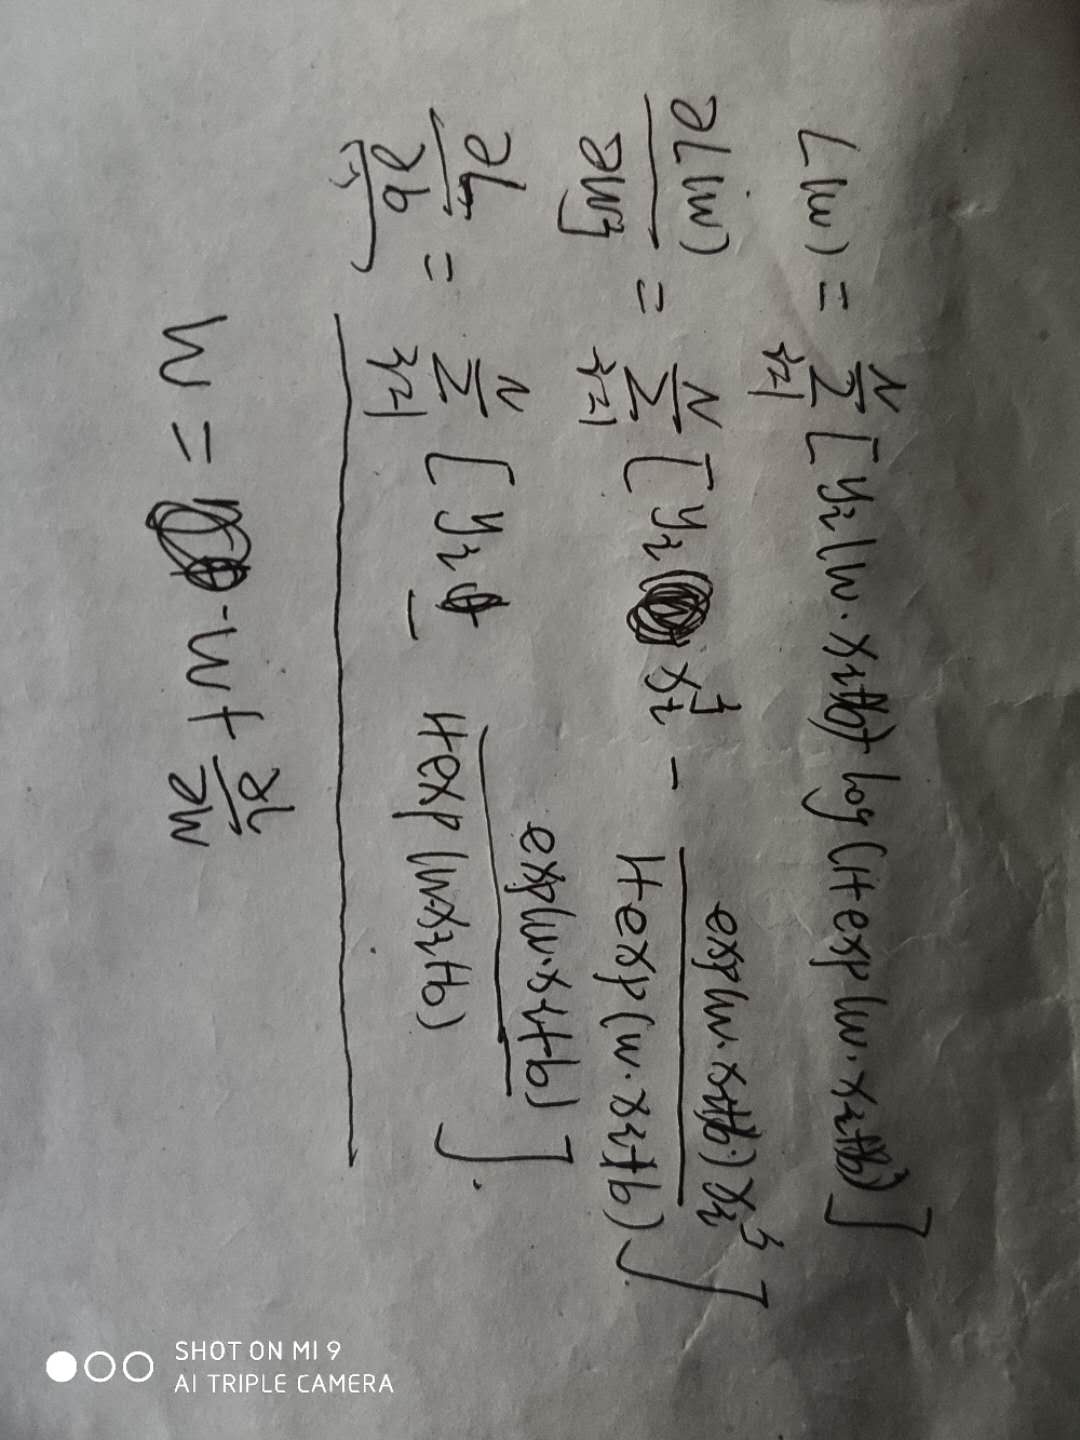 L(w) = Σ_{i=1}^{N} [y_i(w·x_i+b) + log(1+exp(w·x_i+b))]
∂L(w)/∂w_j = Σ_{i=1}^{N} [y_i x_i^j - exp(w·x_i+b)x_i^j / 1+exp(w·x_i+b)]
∂L/∂b = Σ_{i=1}^{N} [y_i - exp(w·x_i+b) / 1+exp(w·x_i+b)].
w = w + ∂L/∂w
SHOT ON MI 9
AI TRIPLE CAMERA